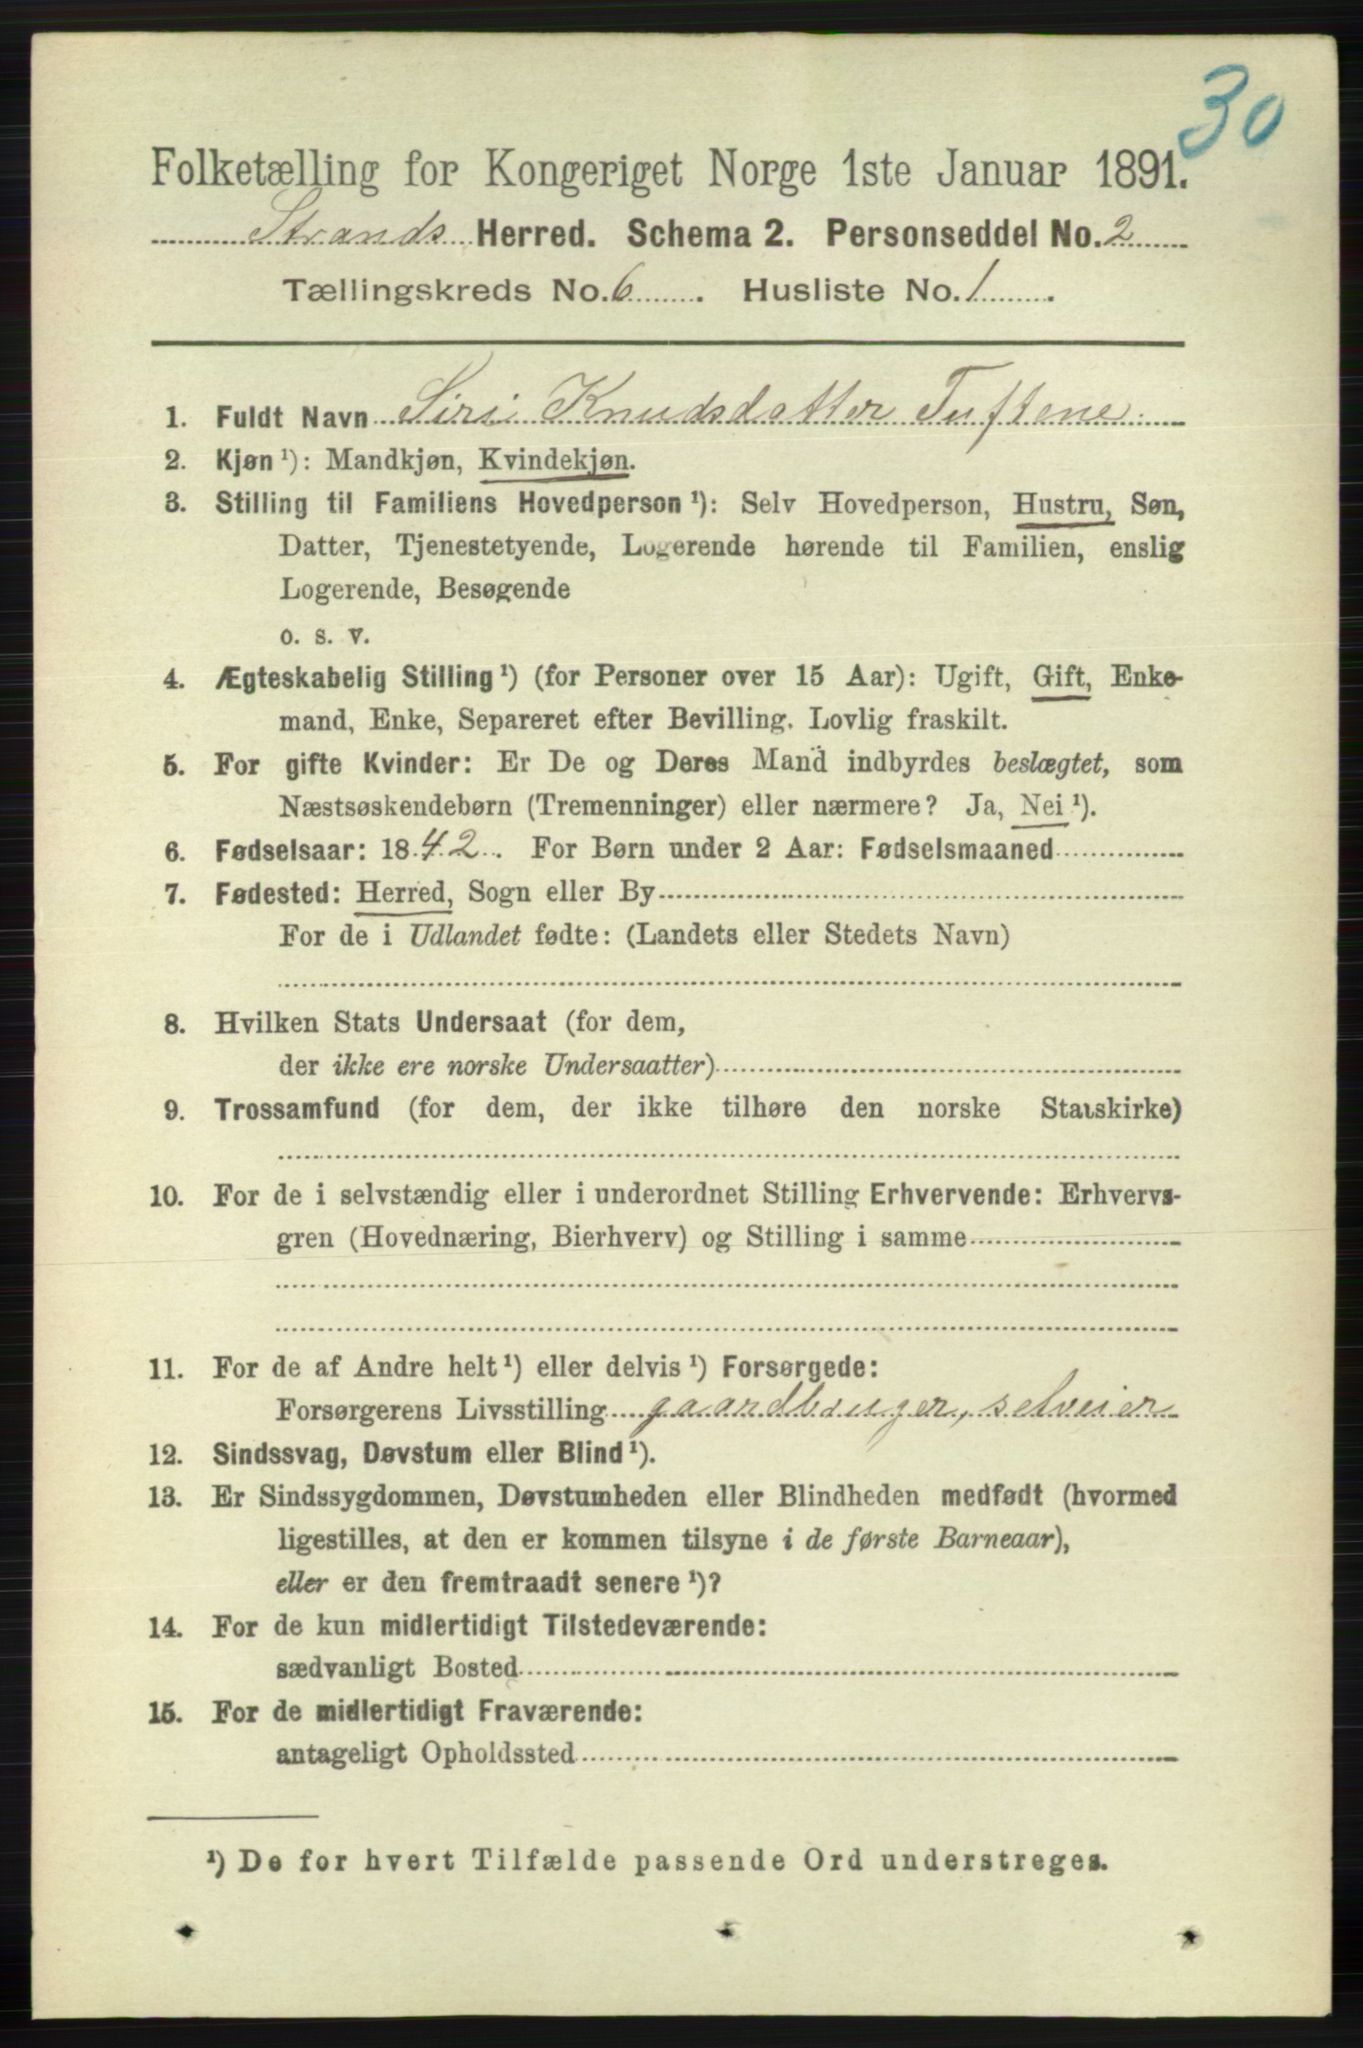 30
Folketælling for Kongeriget Norge 1ste Januar 1891.
Strands Herred. Schema 2. Personseddel No. 2
Tællingskreds No. 6. Husliste No. 1.
1. Fuldt Navn Siri Knudsdatter Tuftene
2. Kjøn ¹): Mandkjøn, Kvindekjøn.
3. Stilling til Familiens Hovedperson ¹): Selv Hovedperson, Hustru, Søn,
Datter, Tjenestetyende, Logerende hørende til Familien, enslig
Logerende, Besøgende
o. s. v.
4. Ægteskabelig Stilling ¹) (for Personer over 15 Aar): Ugift, Gift, Enke-
mand, Enke, Separeret efter Bevilling. Lovlig fraskilt.
5. For gifte Kvinder: Er De og Deres Mand indbyrdes beslægtet, som
Næstsøskendebørn (Tremenninger) eller nærmere? Ja, Nei ¹).
6. Fødselsaar: 1842. For Børn under 2 Aar: Fødselsmaaned
7. Fødested: Herred, Sogn eller By
For de i Udlandet fødte: (Landets eller Stedets Navn)
8. Hvilken Stats Undersaat (for dem,
der ikke ere norske Undersaatter)
9. Trossamfund (for dem, der ikke tilhøre den norske Statskirke)
10. For de i selvstændig eller i underordnet Stilling Erhvervende: Erhvervs-
gren (Hovednæring, Bierhverv) og Stilling i samme
11. For de af Andre helt ¹) eller delvis ¹) Forsørgede:
Forsørgerens Livsstilling gaardbruger, selveier
12. Sindssvag, Døvstum eller Blind ¹).
13. Er Sindssygdommen, Døvstumheden eller Blindheden medfødt (hvormed
ligestilles, at den er kommen tilsyne i de første Barneaar),
eller er den fremtraadt senere ¹)?
14. For de kun midlertidigt Tilstedeværende:
sædvanligt Bosted
15. For de midlertidigt Fraværende:
antageligt Opholdssted
¹) De for hvert Tilfælde passende Ord understreges.